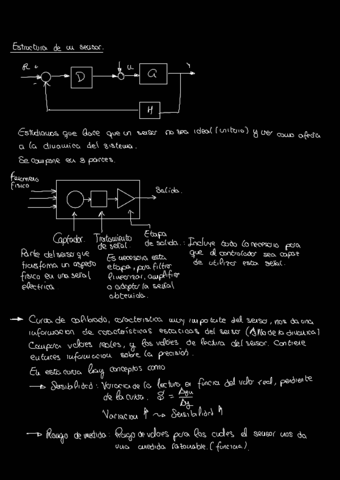 Estructura de un sensor.
R + D U G Y
-
H
Estudiamos que hace que un sensor no sea ideal (unitario) y ver como afecta
a la dinamica del sistema.
Se compone en 3 partes.
Fenomeno
Fisico
Salida.
Captador
Tratamiento
de señal
Etapa
de salida.:
Parte del sensor que
transforma un aspecto
fisico en una señal
electrica
Es necesaria esta
etapa, para filtrar
linearizar, amplificar
o adaptar la señal
obtenida.
Incluye todo lo necesario para
que el controlador sea capaz
de utilizar esta señal.
→ Curva de calibrado, caracteristica muy importante del sensor, nos da una
informacion de caracteristicas estaticas del sensor (¡No de la dinamica)
Compara valores reales, y los valores de lectura del sensor. Contiene
informacion sobre la precisión.
En esta curva hay conceptos como
→ Sensibilidad: Variacion de la lectura en funcion del valor real, pendiente
de la curva. S = Δym / Δy
Variacion ↑ → Sensibilidad ↑
→ Rango de medida: Rango de valores para los cuales el sensor nos da
una medida razonable. (funciona).